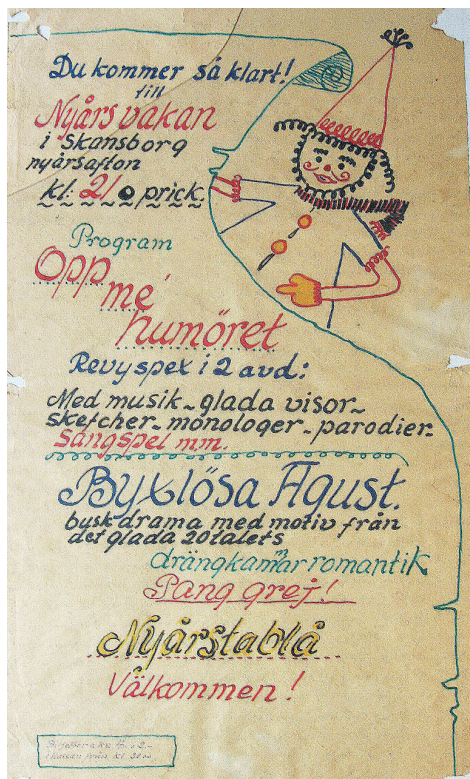 Du kommer så klart!
till
Nyårsvakan
i Skansborg
nyårsafton
kl: 21 prick.
Program
Opp
me'
humöret
Revyspex i 2 avd:
Med musik - glada visor -
sketcher - monologer - parodier -
Sångspel mm.
Byxlösa Agust.
buskdrama med motiv från
det glada 20talets
drängkammarromantik
Pang grej!
Nyårstablå
Välkommen!